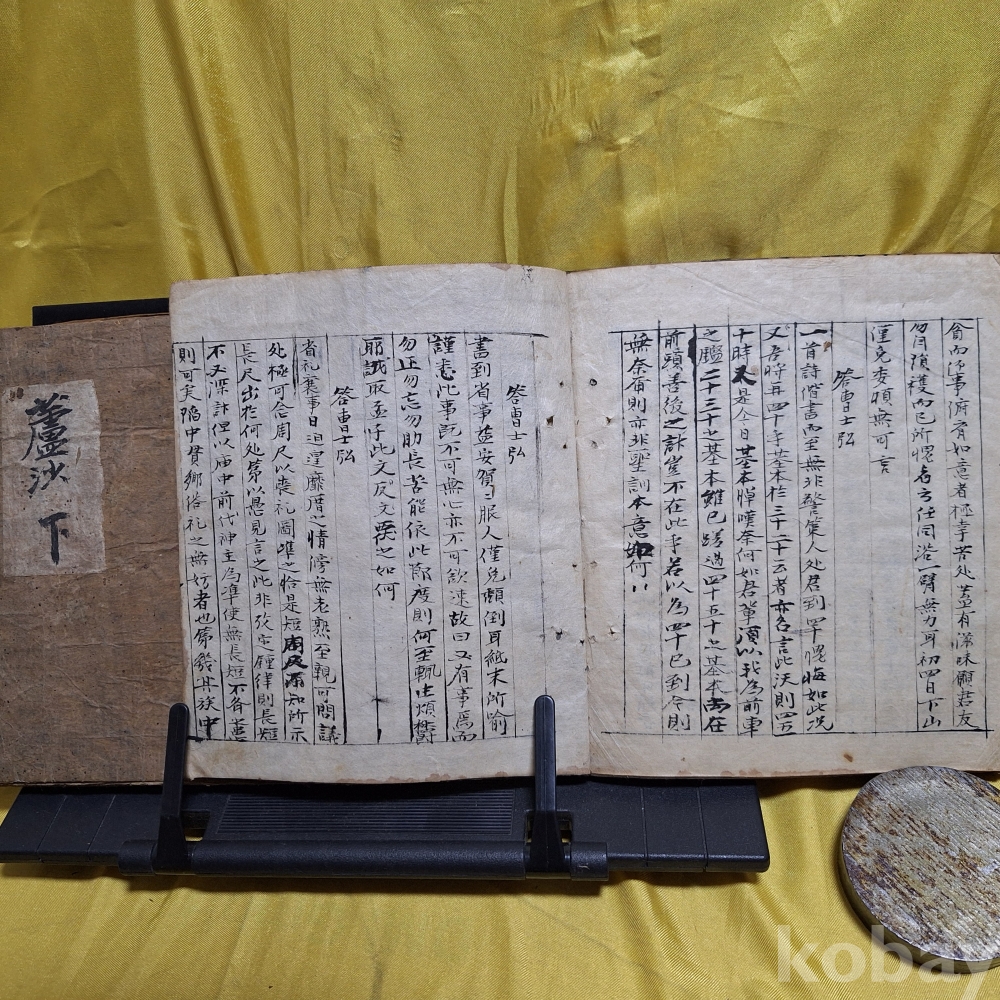 貪而涉事有如意者極幸苦處盖有滋味願君友
而已所愧者方任同浴一臂無力耳初四日下山
僅免委頓無可言
答曺士弘
一首詩偕書而至無非警策人処君到四十愧悔如此况
又吾時再四十乎基本於三十二十云者亦名言此決則四五
十時又是今日基本悼嘆奈何如君輩須以我為前車
之鑑二十三十之基本雖已蹉過四十五十之基本尚在
前頭善後之訣豈不在此乎若以為四十已到今則
無奈有則亦非聖訓本意如何
答曺士弘
書到省事益安賀賀服人僅免顚倒耳紙末所喻
謹悉此事旣不可無心亦不可欲速故曰又有事焉而
勿正勿忘勿助長若能依此節度則何至輒生煩
耶試取孟子此文反文覆之如何
答曺士弘
省礼襄事日迫遑靡厝之情傍無老熟至親可問議
処極可念周尺以喪礼圖準之恰是短周尺不知所示
長尺出於何処第以愚見言之此非攷定鍾律則長短
不又深計但以庙中前代神主為準使無長短不齊
則可矣陷中貫鄕俗礼之無妨者也第幾井族中
蘆沙 下
kobay